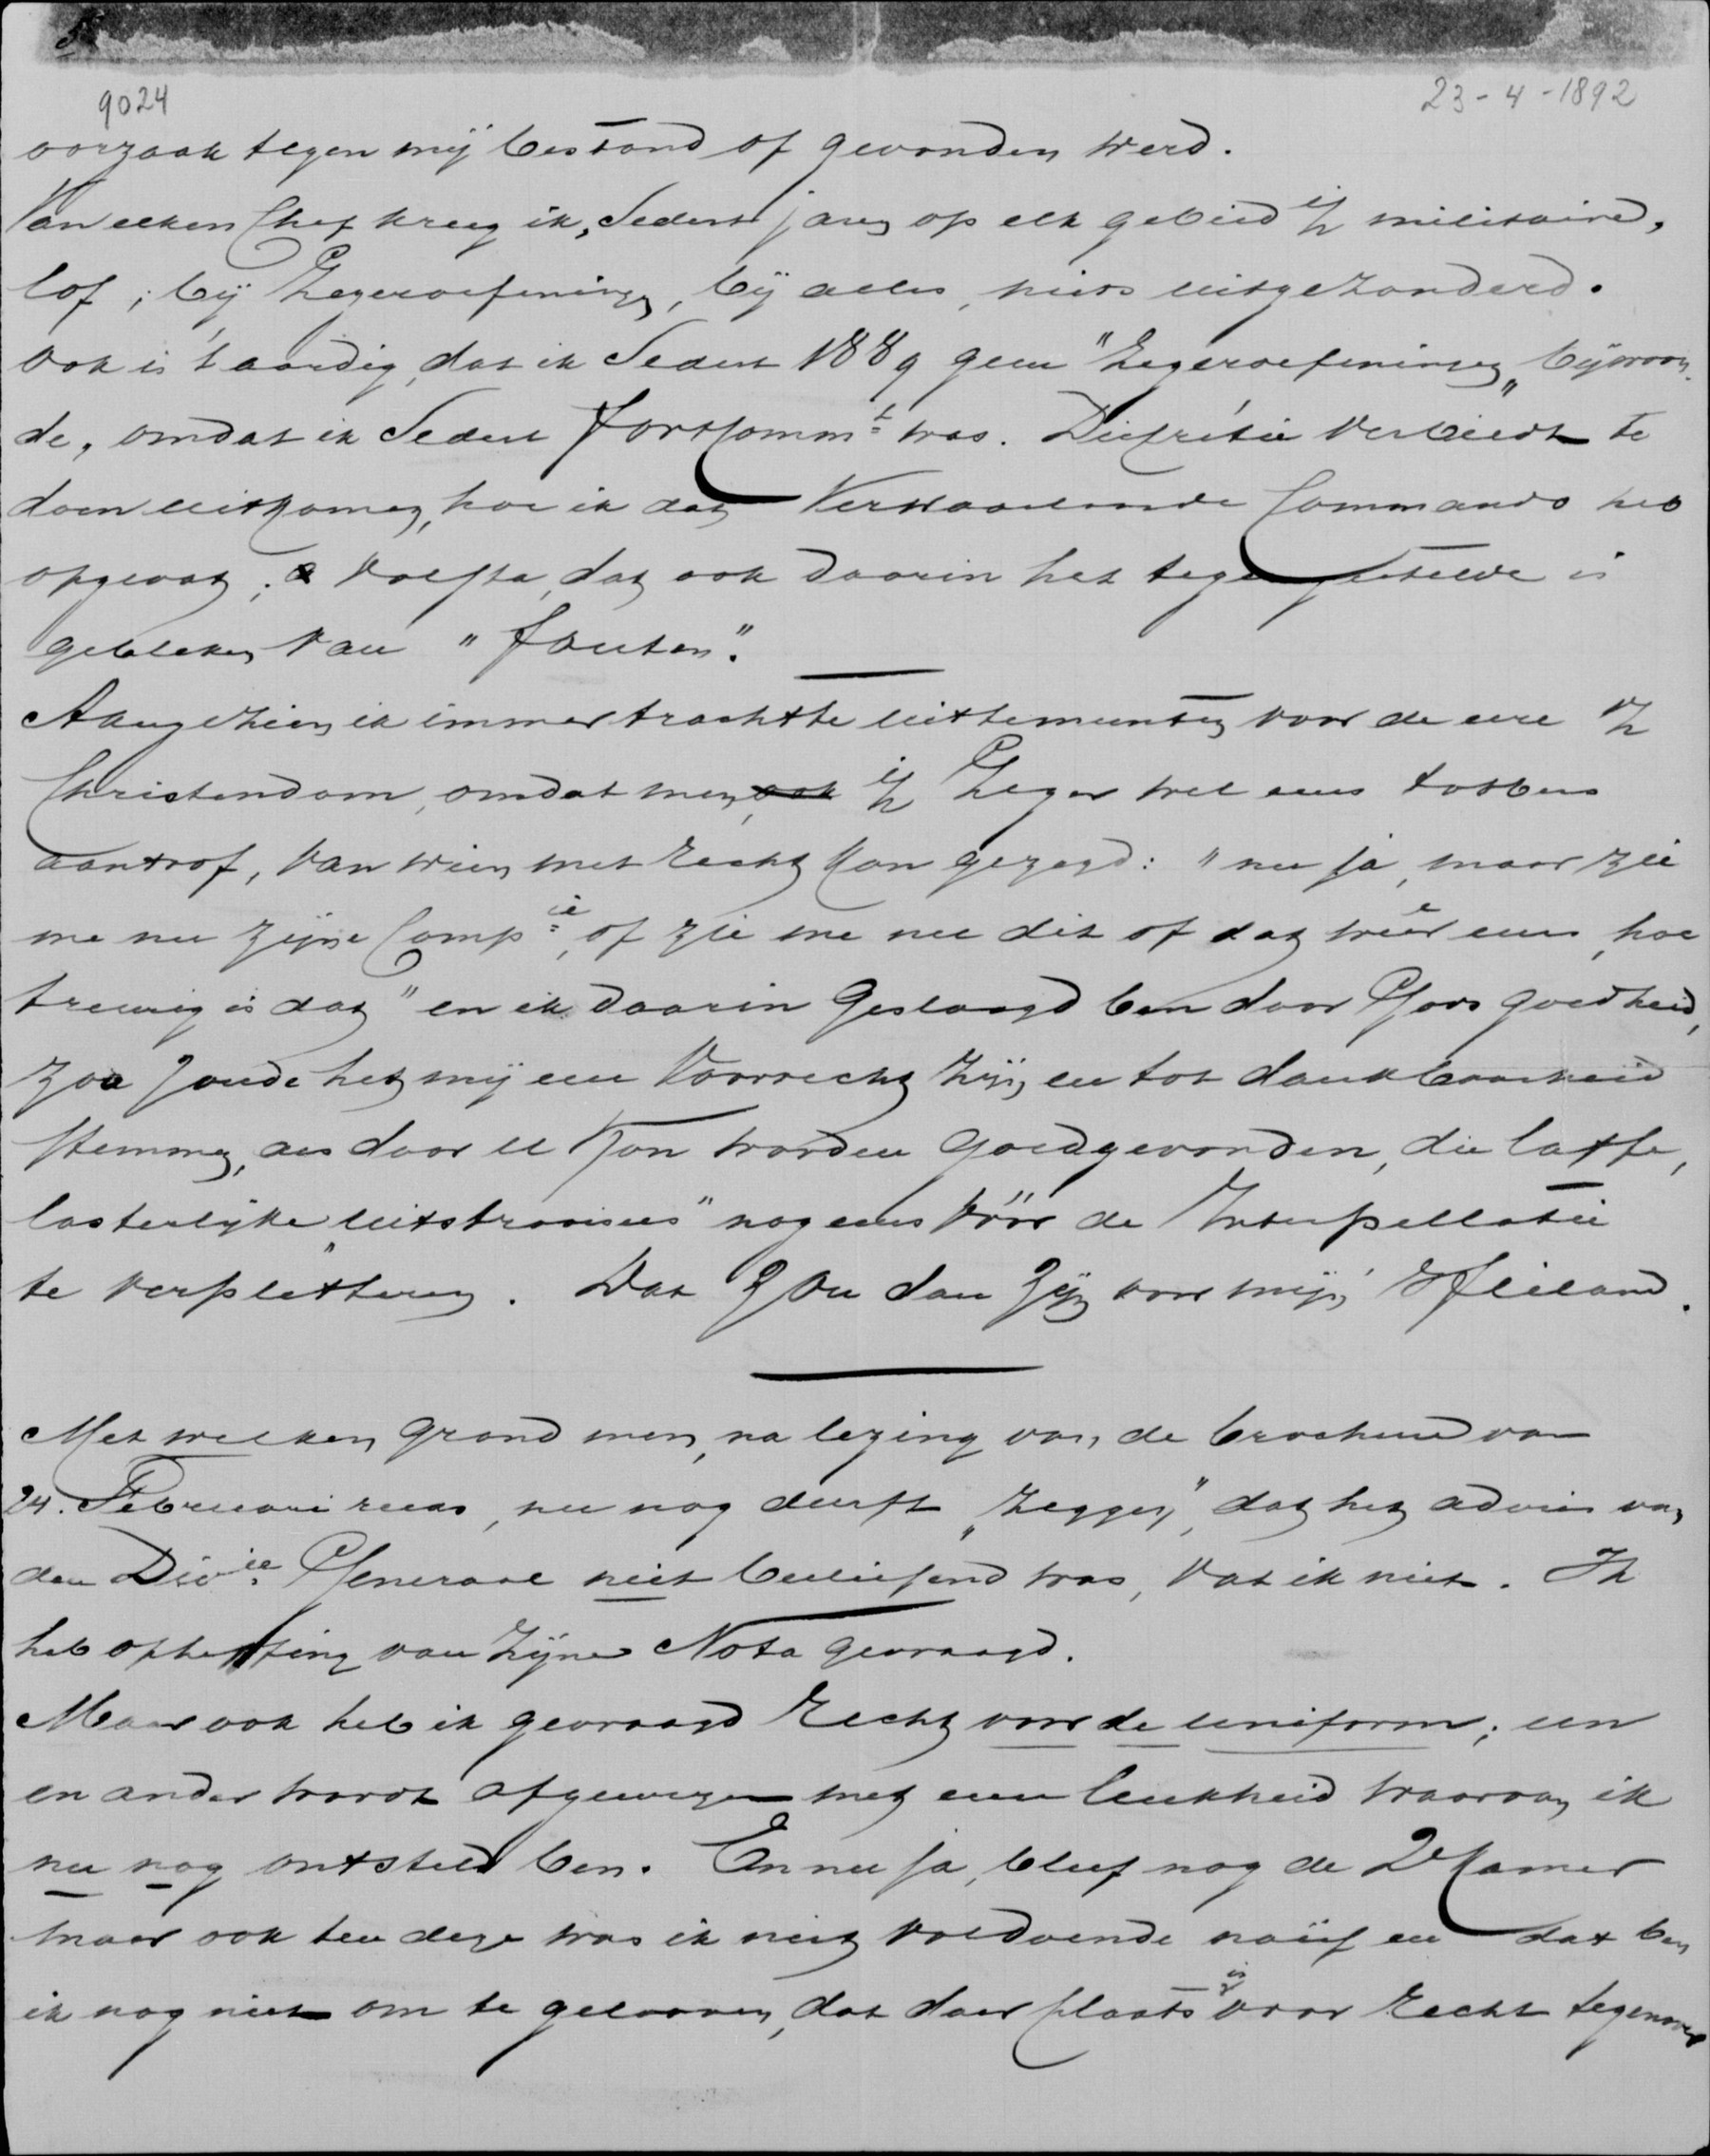 9024
23-4-1892
oorzaak tegen mij bestond of gevonden werd.
Van elken Chef kreeg ik, sedert jaren op elk gebied i/h militaire,
lof; bij Legeroefeningen, bij alles, niets uitgezonderd.
Ook is 't aardig, dat ik sedert 1889 geen "Legeroefeningen" bijwoon-
de, omdat ik sedert Fortkommt was. Discretie verbiedt te
doen uitkomen, hoe ik dat verwaarloosde Commando heb
opgevat; volsta, dat ook daarin het tegengestelde is
gebleken van "fouten".
Aangezien ik immer trachtte uittemunten voor de eere v/h
Christendom, omdat men, ook i/h Leger wel eens tobbers
aantrof, van wien met recht kon gezegd: "nu ja, maar zie
me nu zijne Compie, of zie me nu dit of dat weêr eens, hoe
treurig is dat" en ik daarin geslaagd ben door Gods goedheid,
zoo zoude het mij een voorrecht zijn en tot dankbaarheid
stemmen, als door U kon worden goedgevonden, die laffe,
lasterlijke "uitstrooisels" nog eens vóór de Interpellatie
te verpletteren. Dat zou dan zijn voor mijn Heiland.
Met welken grond men, na lezing van de brochure van
24. Februari reeds, nu nog durft "zeggen", dat het advies van
den Divie Generaal niet beslissend was, vat ik niet. Ik
heb opheffing van zijne Nota gevraagd.
Maar ook heb ik gevraagd recht voor de uniform; een
en ander wordt afgewezen met een leukheid waarvan ik
nu nog ontsteld ben. En nu ja, bleef nog de 2e Kamer
maar ook ten deze was ik niet voldoende naïef en dat ben
ik nog niet om te gelooven, dat daar plaats is voor recht tegenover